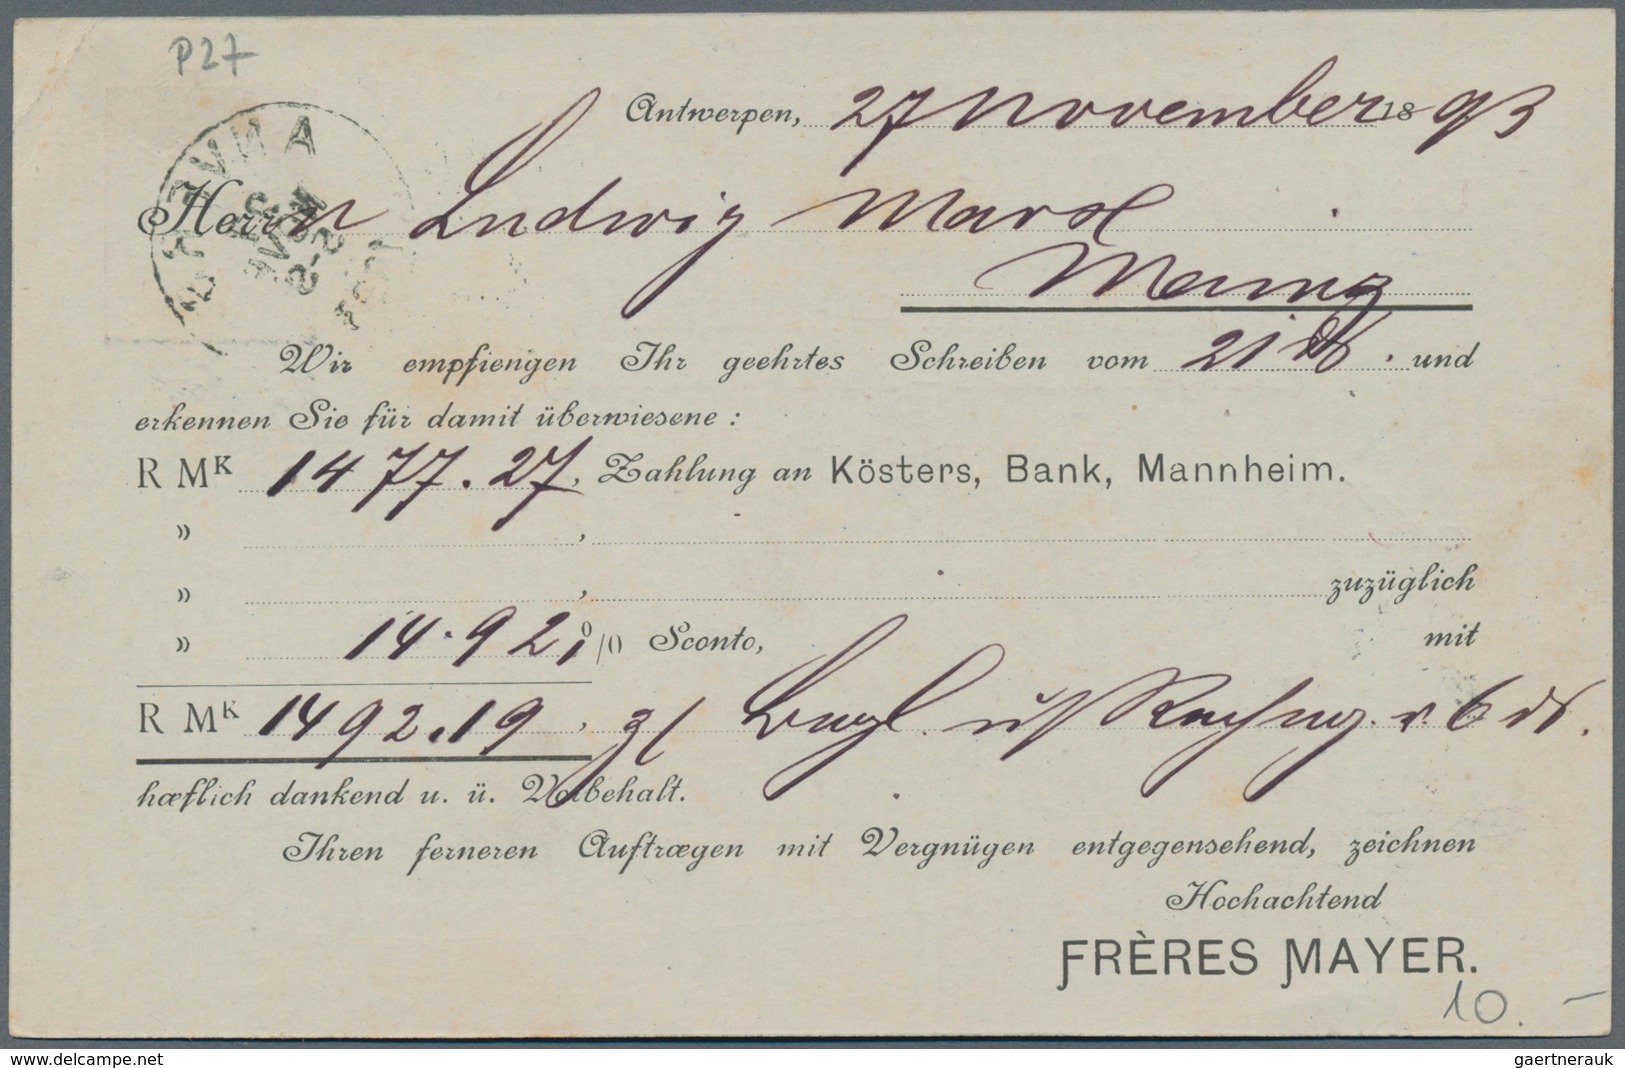 P27
Antwerpen, 27 November 1893
Herrn Ludwig Marx
Mainz
Wir empfiengen Ihr geehrtes Schreiben vom 21 ds. und
erkennen Sie für damit überwiesene :
R MK 1477.27, Zahlung an Kösters, Bank, Mannheim.
» ,
» , zuzüglich
» 14.92, 0/0 Sconto, mit
R MK 1492.19,
hœflich dankend u. ü. Vorbehalt.
Ihren ferneren Auftrægen mit Vergnügen entgegensehend, zeichnen
Hochachtend
FRÈRES MAYER.
10.–
www.delcampe.net
gaertnerauk